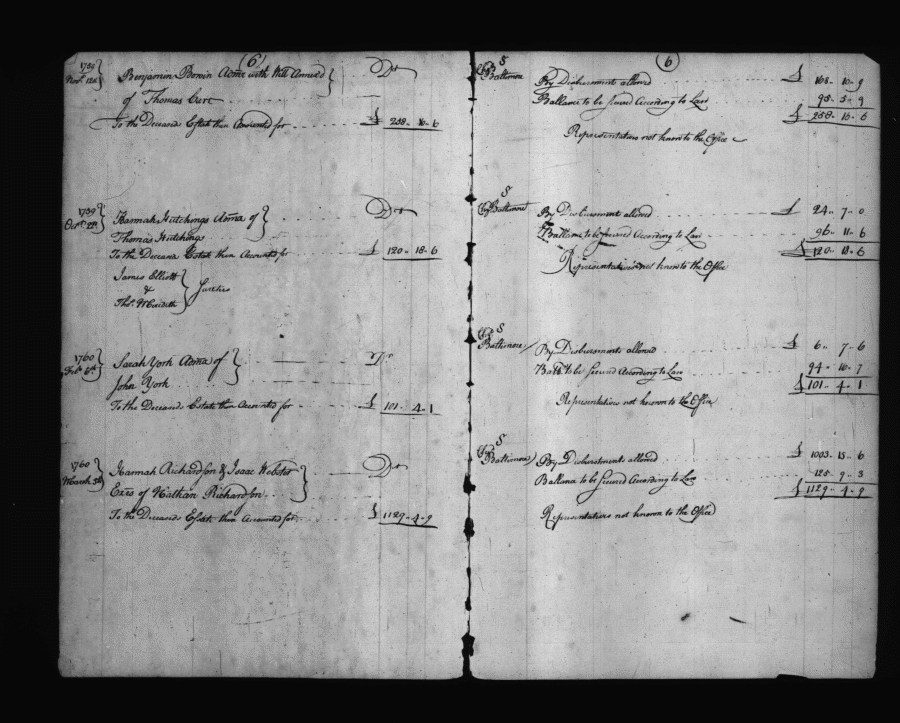 (6)
1759
Novr. 12th
Benjamin Bowin Admr with Will Annexed Dr
of Thomas Curt
To the Deceasds Estate then Accounted for £ 258 - 16 - 6
1759
Octr. 2d
Hannah Hutchings Adma of Dr
Thomas Hutchings
To the Deceasds Estate then Accounted for £ 120 - 18 - 6
James Elliott
&
Thos. Merideth
Sureties
1760
Feby 6th
Sarah York Adma of Dr
John York
To the Deceaseds Estate then Accounted for £ 101 - 4 - 1
1760
March 5th
Hannah Richardson & Isaac Webster Dr
Exrs of Nathan Richardson
To the Deceaseds Estate then Accounted for £ 1129 - 4 - 9
(6)
Baltimore
By Disbursement allowed £ 163 - 10 - 9
Ballance to be secured According to Law 95 - 5 - 9
£ 258 - 16 - 6
Representatives not known to the Office
Baltimore
By Disbursement allowed £ 24 - 7 - 0
Ballance to be secured According to Law 96 - 11 - 6
£ 120 - 18 - 6
Representatives not known to the Office
Baltimore
By Disbursements allowed £ 6 - 7 - 6
Balle to be secured According to Law 94 - 16 - 7
£ 101 - 4 - 1
Representatives not known to the Office
Baltimore
By Disburstments allowed £ 1003 - 15 - 6
Ballance to be secured According to Law 125 - 9 - 3
£ 1129 - 4 - 9
Representatives not known to the Office